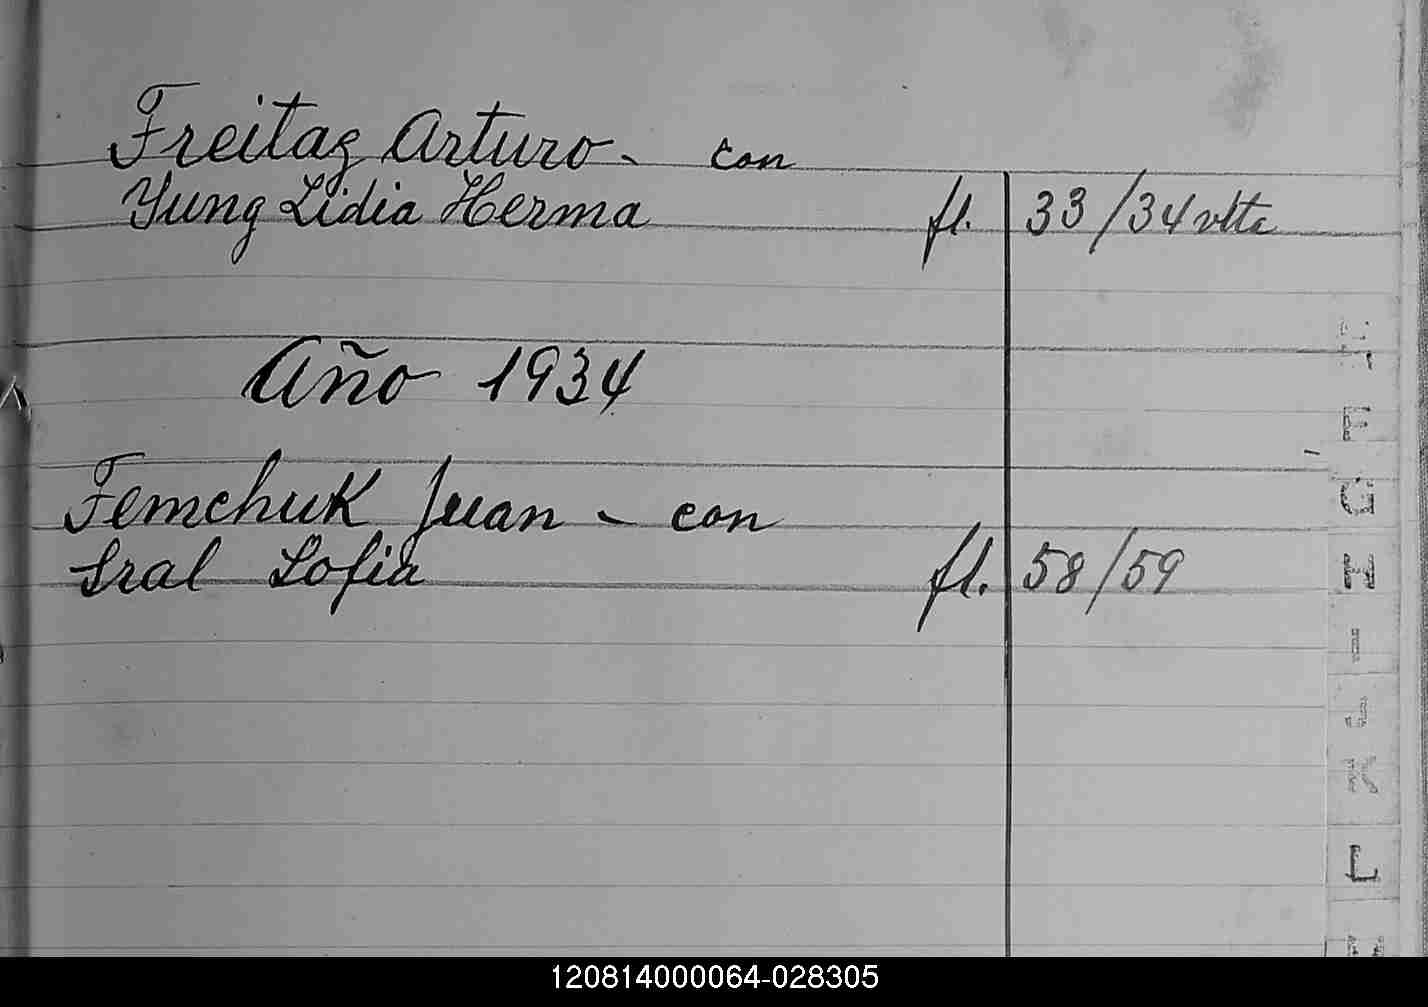 Freitag Arturo - con
Yung Lidia Herma fl. 33/34 vlta
Año 1934
Femchuk Juan - con
Sral Sofia fl. 58/59
F
G
H
I
J
K
L
120814000064-028305